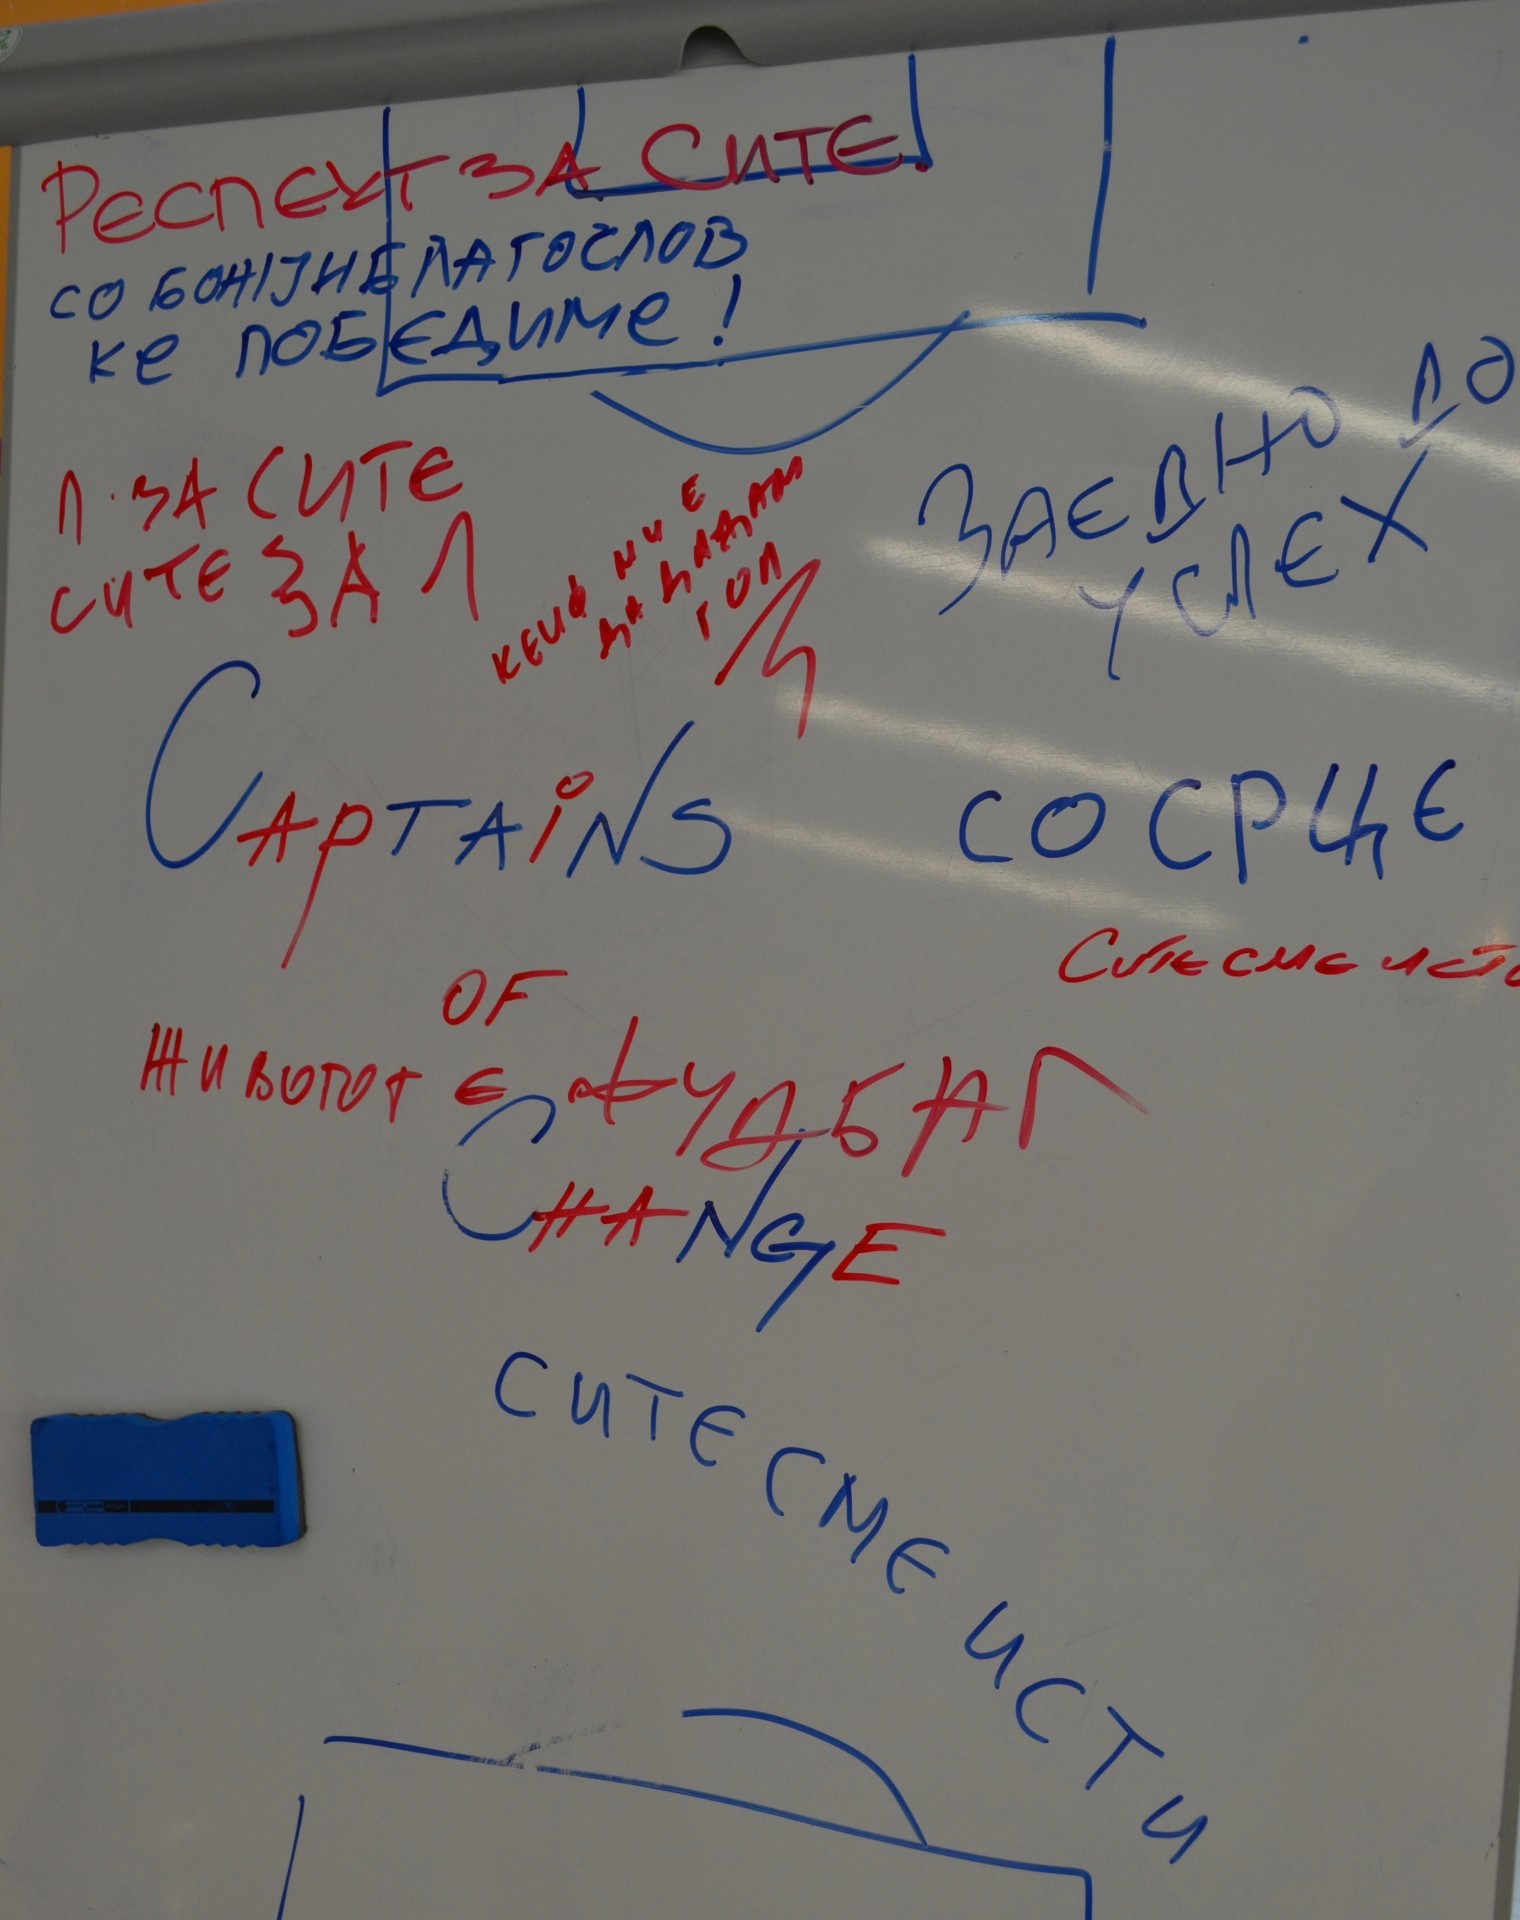 РЕСПЕКТ ЗА СИТЕ!
СО БОЖЈИ БЛАГОСЛОВ
КЕ ПОБЕДИМЕ!
1 ЗА СИТЕ
СИТЕ ЗА 1
КЕИФ МИ Е
ДА ДАДАМ
ГОЛ
ЗАЕДНО ДО
УСПЕХ
CAPTAiNS
СО СРЦЕ
СИТЕ СМЕ
OF
ЖИВОТОТ Е ФУДБАЛ
CHANGE
СИТЕ СМЕ ИСТИ